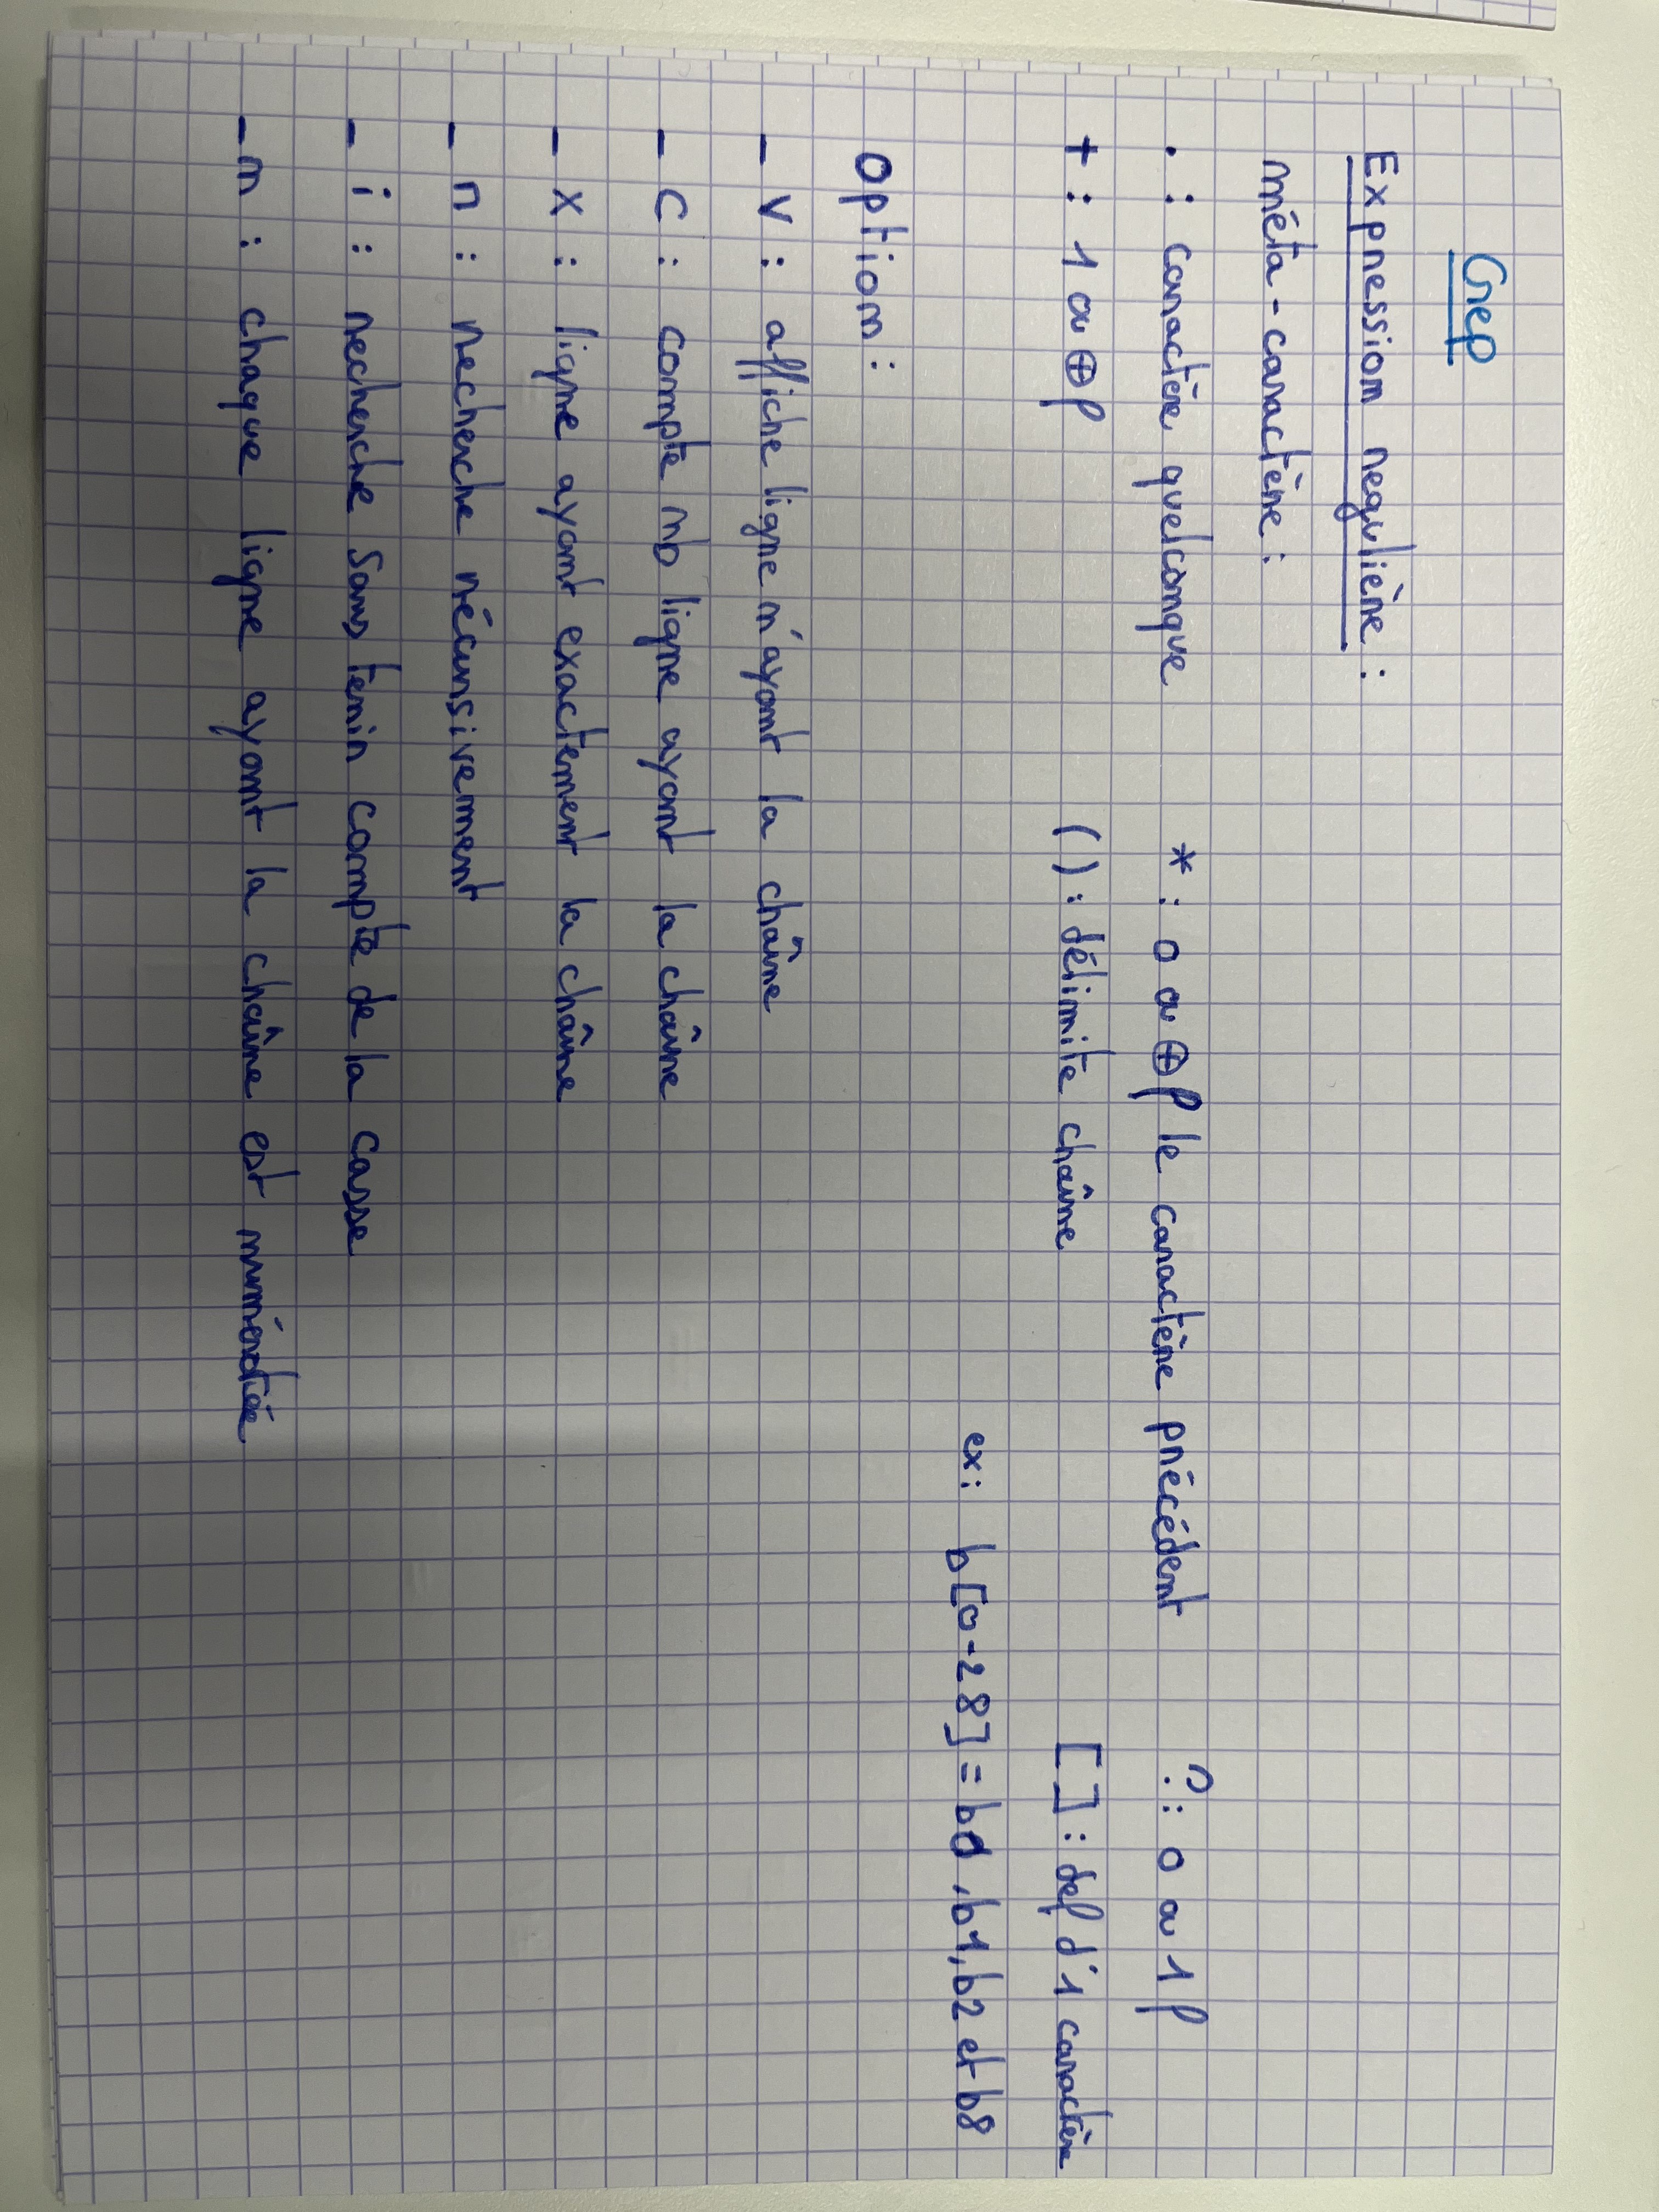 Grep
Expression régulière :
méta-caractère :
. : caractère quelconque * : 0 ou ⊕ρ le caractère précédent ? : 0 ou 1ρ
+ : 1 ou ⊕ρ ( ) : délimite chaîne [ ] : def d'1 caractère
ex : b[0-28] = b0, b1, b2 et b8
Option :
- v : affiche ligne n'ayant la chaîne
- c : compte nb ligne ayant la chaîne
- x : ligne ayant exactement la chaîne
- r : recherche récursivement
- i : recherche sans tenir compte de la casse
- n : chaque ligne ayant la chaîne est numérotée